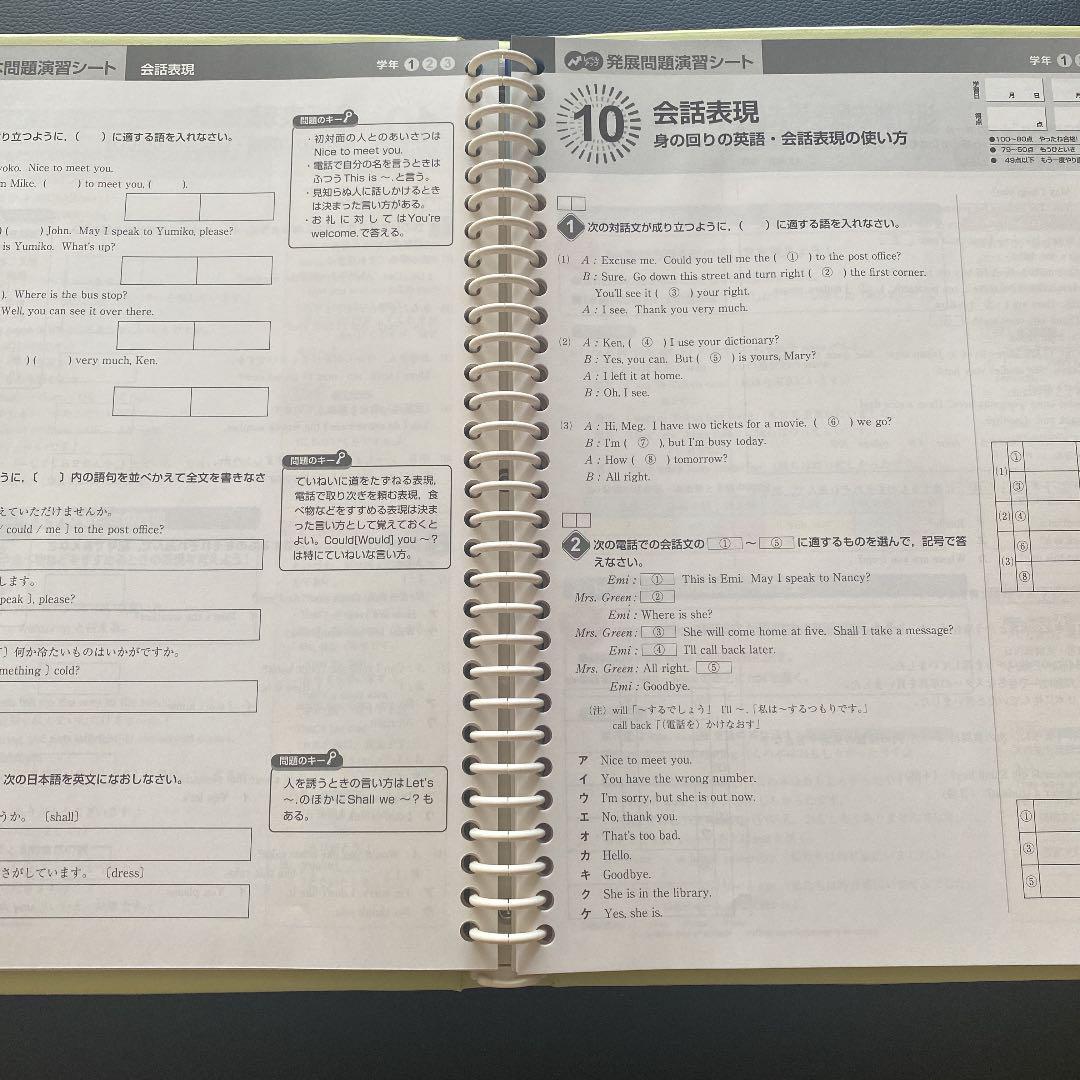 本問題演習シート 会話表現 学年 1 2 3
り立つように，（　）に適する語を入れなさい。
yoko. Nice to meet you.
m Mike. (　) to meet you, (　).
) (　) John. May I speak to Yumiko, please?
is Yumiko. What's up?
). Where is the bus stop?
Well, you can see it over there.
) (　) very much, Ken.
問題のキー
・初対面の人とのあいさつは
Nice to meet you.
・電話で自分の名を言うときは
ふつう This is ～. と言う。
・見知らぬ人に話しかけるとき
は決まった言い方がある。
・お礼に対してはYou're
welcome.で答える。
うに，〔　〕内の語句を並べかえて全文を書きなさ
えていただけませんか。
/ could / me 〕 to the post office?
します。
peak 〕, please?
〕 何か冷たいものはいかがですか。
mething 〕 cold?
問題のキー
ていねいに道をたずねる表現，
電話で取り次ぎを頼む表現，食
べ物などをすすめる表現は決ま
った言い方として覚えておくと
よい。Could[Would] you ～?
は特にていねいな言い方。
次の日本語を英文になおしなさい。
うか。〔shall〕
さがしています。〔dress〕
問題のキー
人を誘うときの言い方はLet's
～.のほかにShall we ～?も
ある。
発展問題演習シート 学年 1
10 会話表現
身の回りの英語・会話表現の使い方
学習日 月 日 月
得点 点
●100～80点 やったね合格!
● 79～50点 もうひといき
● 49点以下 もう一度やり
1 次の対話文が成り立つように，（　）に適する語を入れなさい。
(1) A : Excuse me. Could you tell me the ( ① ) to the post office?
B : Sure. Go down this street and turn right ( ② ) the first corner.
You'll see it ( ③ ) your right.
A : I see. Thank you very much.
(2) A : Ken, ( ④ ) I use your dictionary?
B : Yes, you can. But ( ⑤ ) is yours, Mary?
A : I left it at home.
B : Oh, I see.
(3) A : Hi, Meg. I have two tickets for a movie. ( ⑥ ) we go?
B : I'm ( ⑦ ), but I'm busy today.
A : How ( ⑧ ) tomorrow?
B : All right.
(1) ①
③
(2) ④
(3) ⑥
⑧
2 次の電話での会話文の ① ～ ⑤ に適するものを選んで，記号で答
えなさい。
Emi : ① This is Emi. May I speak to Nancy?
Mrs. Green : ②
Emi : Where is she?
Mrs. Green : ③ She will come home at five. Shall I take a message?
Emi : ④ I'll call back later.
Mrs. Green : All right. ⑤
Emi : Goodbye.
（注） will「～するでしょう」 I'll ～.「私は～するつもりです。」
call back「（電話を）かけなおす」
ア Nice to meet you.
イ You have the wrong number.
ウ I'm sorry, but she is out now.
エ No, thank you.
オ That's too bad.
カ Hello.
キ Goodbye.
ク She is in the library.
ケ Yes, she is.
①
③
⑤